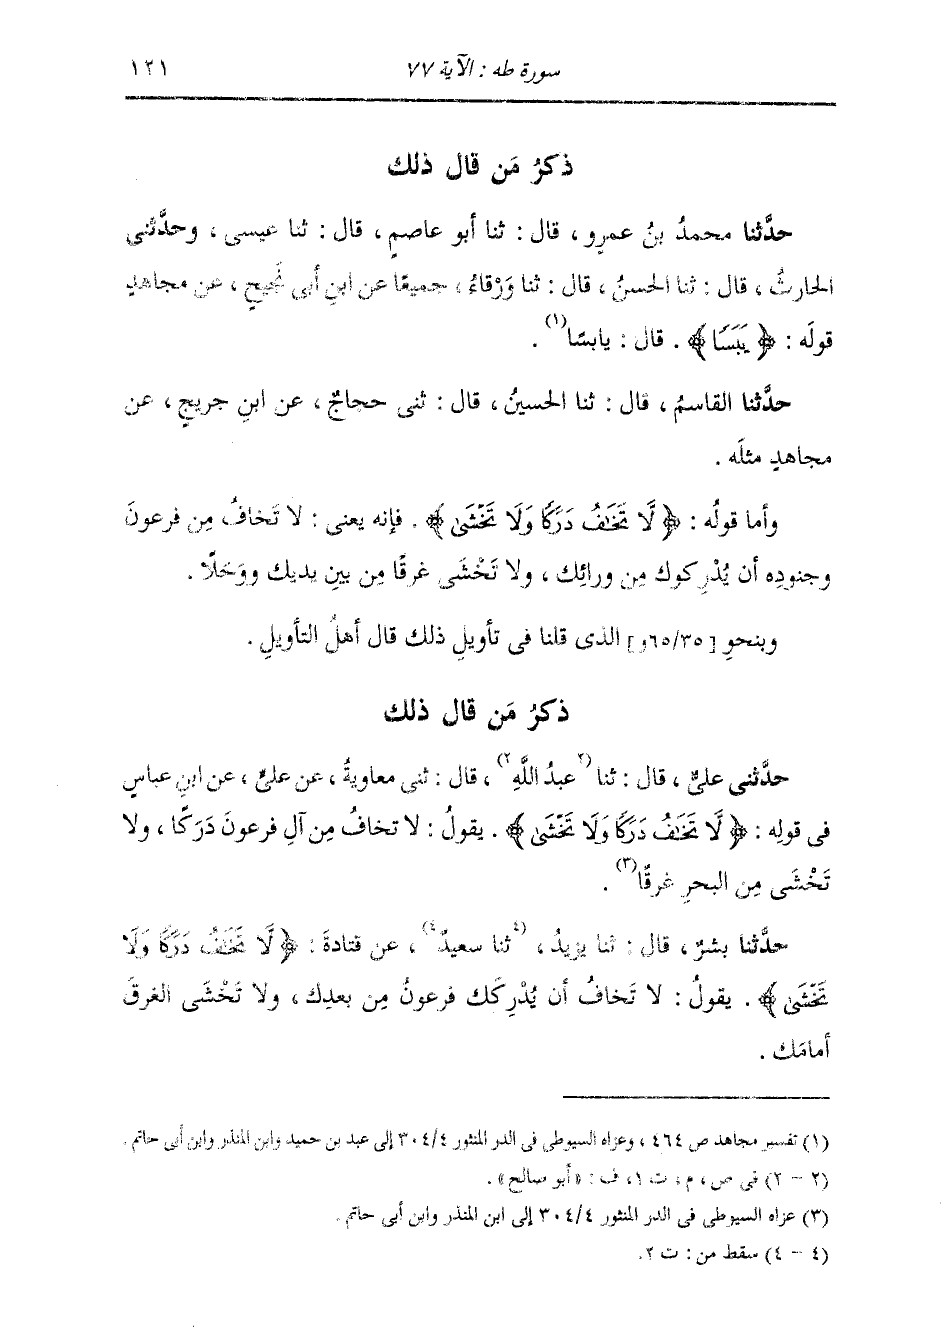 سورة طه : الآية ٧٧
١٢١
ذكرُ مَن قال ذلك
حدَّثنا محمدُ بنُ عمرٍو ، قال : ثنا أبو عاصمٍ ، قال : ثنا عيسى ، وحدَّثنى
الحارثُ ، قال : ثنا الحسنُ ، قال : ثنا وَرْقاءُ ، جميعًا عن ابنِ أبى نَجيحٍ ، عن مجاهدٍ
قولَه : ﴿ يَبَسًا ﴾ . قال : يابسًا(١) .
حدَّثنا القاسمُ ، قال : ثنا الحسينُ ، قال : ثنى حجاجٌ ، عن ابنِ جريجٍ ، عن
مجاهدٍ مثلَه .
وأما قولُه : ﴿ لَّا تَخَٰفُ دَرَكًا وَلَا تَخْشَىٰ ﴾ . فإنه يعنى : لا تَخافُ مِن فرعونَ
وجنودِه أن يُدْرِكوك مِن ورائِك ، ولا تَخْشَى غرقًا مِن بينِ يديك ووَحَلًا .
وبنحوِ [٣٥/ ٦٥و] الذى قلنا فى تأويلِ ذلك قال أهلُ التأويلِ .
ذكرُ مَن قال ذلك
حدَّثنى علىٌّ ، قال : ثنا (٢عبدُ اللَّهِ٢) ، قال : ثنى معاويةُ ، عن علىٍّ ، عن ابنِ عباسٍ
فى قولِه : ﴿ لَّا تَخَٰفُ دَرَكًا وَلَا تَخْشَىٰ ﴾ . يقولُ : لا تخافُ مِن آلِ فرعونَ دَرَكًا ، ولا
تَخْشَى مِن البحرِ غرقًا(٣) .
حدَّثنا بشرٌ ، قال : ثنا يزيدُ ، (٤ثنا سعيدٌ٤) ، عن قتادةَ : ﴿ لَّا تَخَٰفُ دَرَكًا وَلَا
تَخْشَىٰ ﴾ . يقولُ : لا تَخافُ أن يُدْرِكَك فرعونُ مِن بعدِك ، ولا تَخْشَى الغرقَ
أمامَك .
(١) تفسير مجاهد ص ٤٦٤ ، وعزاه السيوطى فى الدر المنثور ٣٠٤/٤ إلى عبد بن حميد وابن المنذر وابن أبى حاتم .
(٢ - ٢) فى ص ، م ، ت ١ ، ف : «أبو صالح» .
(٣) عزاه السيوطى فى الدر المنثور ٣٠٤/٤ إلى ابن المنذر وابن أبى حاتم .
(٤ - ٤) سقط من : ت ٢ .